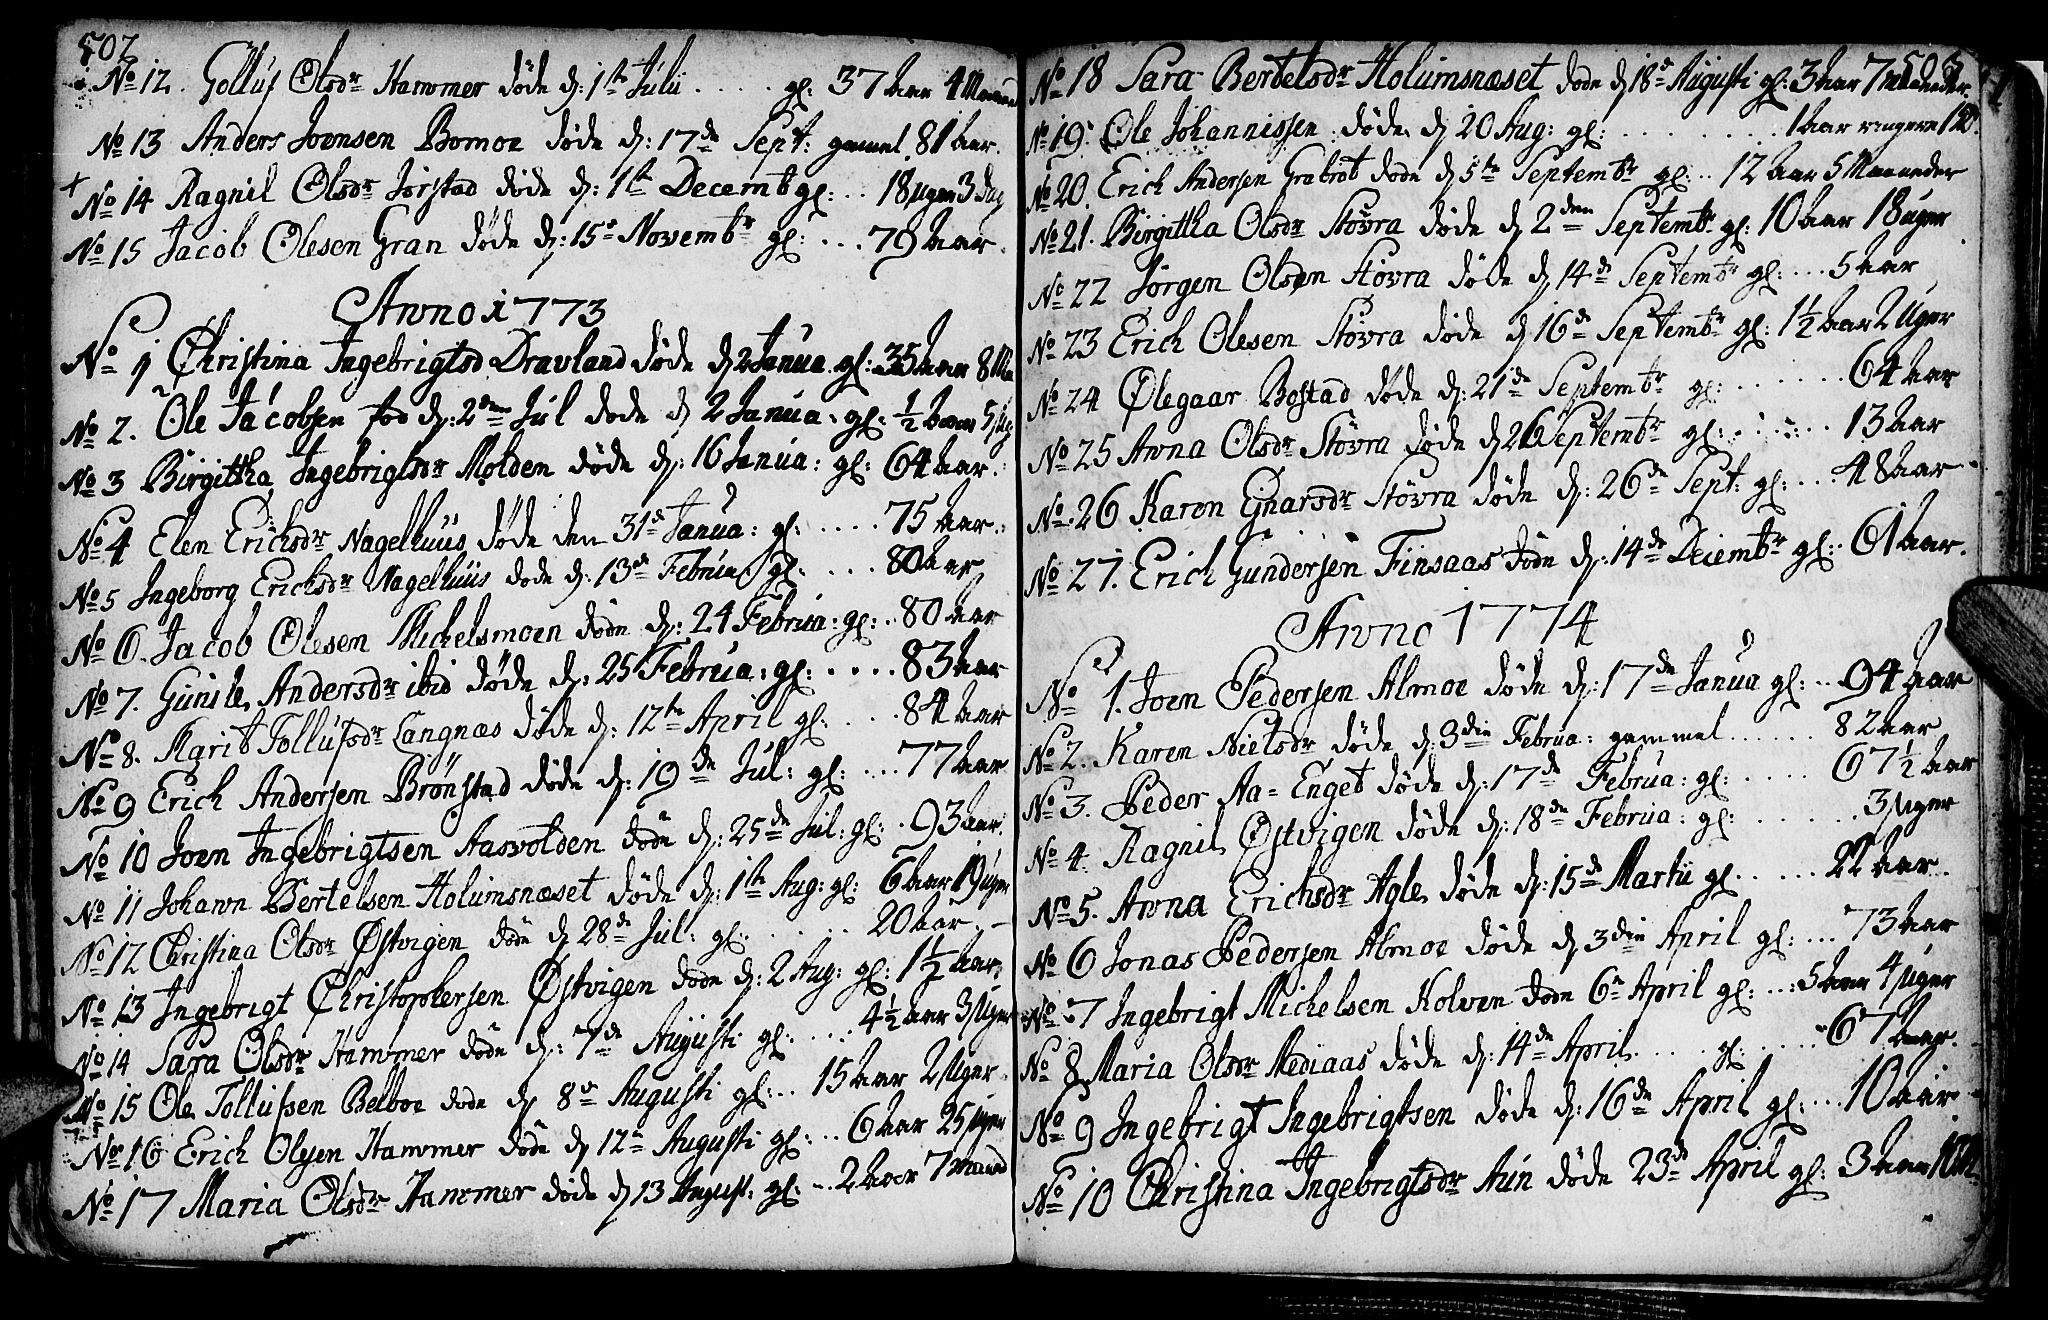 502
No 12. Golluf Olsdr Hammer døde d: 1te Julii . . . . . gl: 37 Aar 4 Maaned
No 13 Anders Joensen Bomoe døde d: 17de Sept: gammel 81 Aar.
+ No 14 Ragnil Olsdr Jørstad døde d: 1te Decemb gl: . . 18 uger 3 Dag
No 15 Jacob Olesen Gran døde d: 15de Novembr gl: . . . 79 Aar.
Anno 1773
No 1 Christina Ingebrigtsd Dravland døde d 2 Janua. gl: 35 Aar 8 Ma
No 2. Ole Jacobsen fød d: 2den Jul døde d 2 Janua: gl: ½ Aar 5 Ug
No 3 Birgittha Ingebrigtsdr Molden døde d: 16 Janua: gl: 64 Aar.
No 4 Elen Erichsdr Nagelhuus døde den 31de Janua: gl: . . . . 75 Aar.
No 5 Ingeborg Erichsdr Nagelhuus døde d: 13de Februa gl: . . . . 80 Aar
No 6. Jacob Olesen Michelsmoen døde d: 24 Februa: gl: . . 80 Aar
No 7. Gunild Andersdr ibid døde d: 25 Februa: gl: . . . . . 83 Aar
No 8. Marit Tollufsdr Langnæs døde d: 12te April gl: . . . . 84 Aar
No 9 Erich Andersen Brønstad døde d: 19de Jul: gl: . . . . 77 Aar
No 10 Joen Ingebrigtsen Aasvolden døde d: 25de Jul: gl: . 93 Aar.
No 11 Johann Bertelsen Holumsnæset døde d: 1te Aug: gl: 6 Aar 19 Uger
No 12 Christina Olsdr Østvigen døde d 28de Jul: gl: . . . . . 20 Aar. -
No 13 Ingebrigt Christophersen Østvigen døde d: 2 Aug: gl: 1½ Aar.
No 14 Sara Olsdr Hammer døde d: 7de Augusti gl: . . . . 4½ Aar 3 Uger
No 15 Ole Tollufsen Belboe døde d 8de Augusti gl: . . 15 Aar 2 Uger
No 16 Erich Olesen Hammer døde d 12te Augusti gl: . . 6 Aar 25 Uger
No 17 Maria Olsdr Hammer døde d 13 August: gl: . . 2 Aar 7 Maand
503
No 18 Sara Bertelsdr Holumsnæset døde d 18de Augusti gl: 3 Aar 7 Maaneder.
No 19 Ole Johannissen døde d 20 Aug: gl: . . . . . . . . . 1 Aar ringere
No 20. Erich Andersen døde d 5te Septembr gl: . . 12 Aar 5 Maaneder
No 21. Birgittha Olsdr Støvra døde d 2den Septembr gl: 10 Aar 18 Uger
No 22 Jørgen Olsen Støvra døde d 14de Septembr gl: . . . 5 Aar
No 23 Erich Olesen Støvra døde d 16de Septembr gl: 1½ Aar 2 Uger
No 24 Ølegaar Bostad døde d: 21de Septembr gl: . . . . . . . 64 Aar
No 25 Anna Olsdr Støvra døde d 26 Septembr gl: . . . . . . 13 Aar
No 26 Karen Ejnarsdr Støvra døde d: 26de Sept: gl: . . . 48 Aar
No 27. Erich Gundersen Finsaas døde d: 14de Decembr gl: . 61 Aar.
Anno 1774
No 1. Joen Pedersen Almoe døde d: 17de Janua gl: . . 94 Aar
No 2. Karen Nielsdr døde d: 3die Februa: gammel . . . . . . 82 Aar
No 3. Peder Aa=Enget døde d: 17de Februa: gl: . . . . . 67½ Aar
No 4. Ragnil Østvigen døde d: 18de Februa: gl: . . . . . . . 3 Uger
No 5. Anna Erichsdr Agle døde d: 15de Martii gl: . . . . . 22 Aar.
No 6 Jonas Pedersen Almoe døde d 3die April gl: . . . 73 Aar
No 7 Ingebrigt Michelsen Holven døde 6te April gl: . . . 5 Aar 4 Uger
No 8. Maria Olsdr Mediaas døde d: 14de April . . . . . gl: . . . . . . 67 Aar.
No 9 Ingebrigt Ingebrigtsen døde d: 16de April gl: . . . 10 Aar.
No 10 Christina Ingebrigtsdr Aun døde 23de April gl: 3 Aar